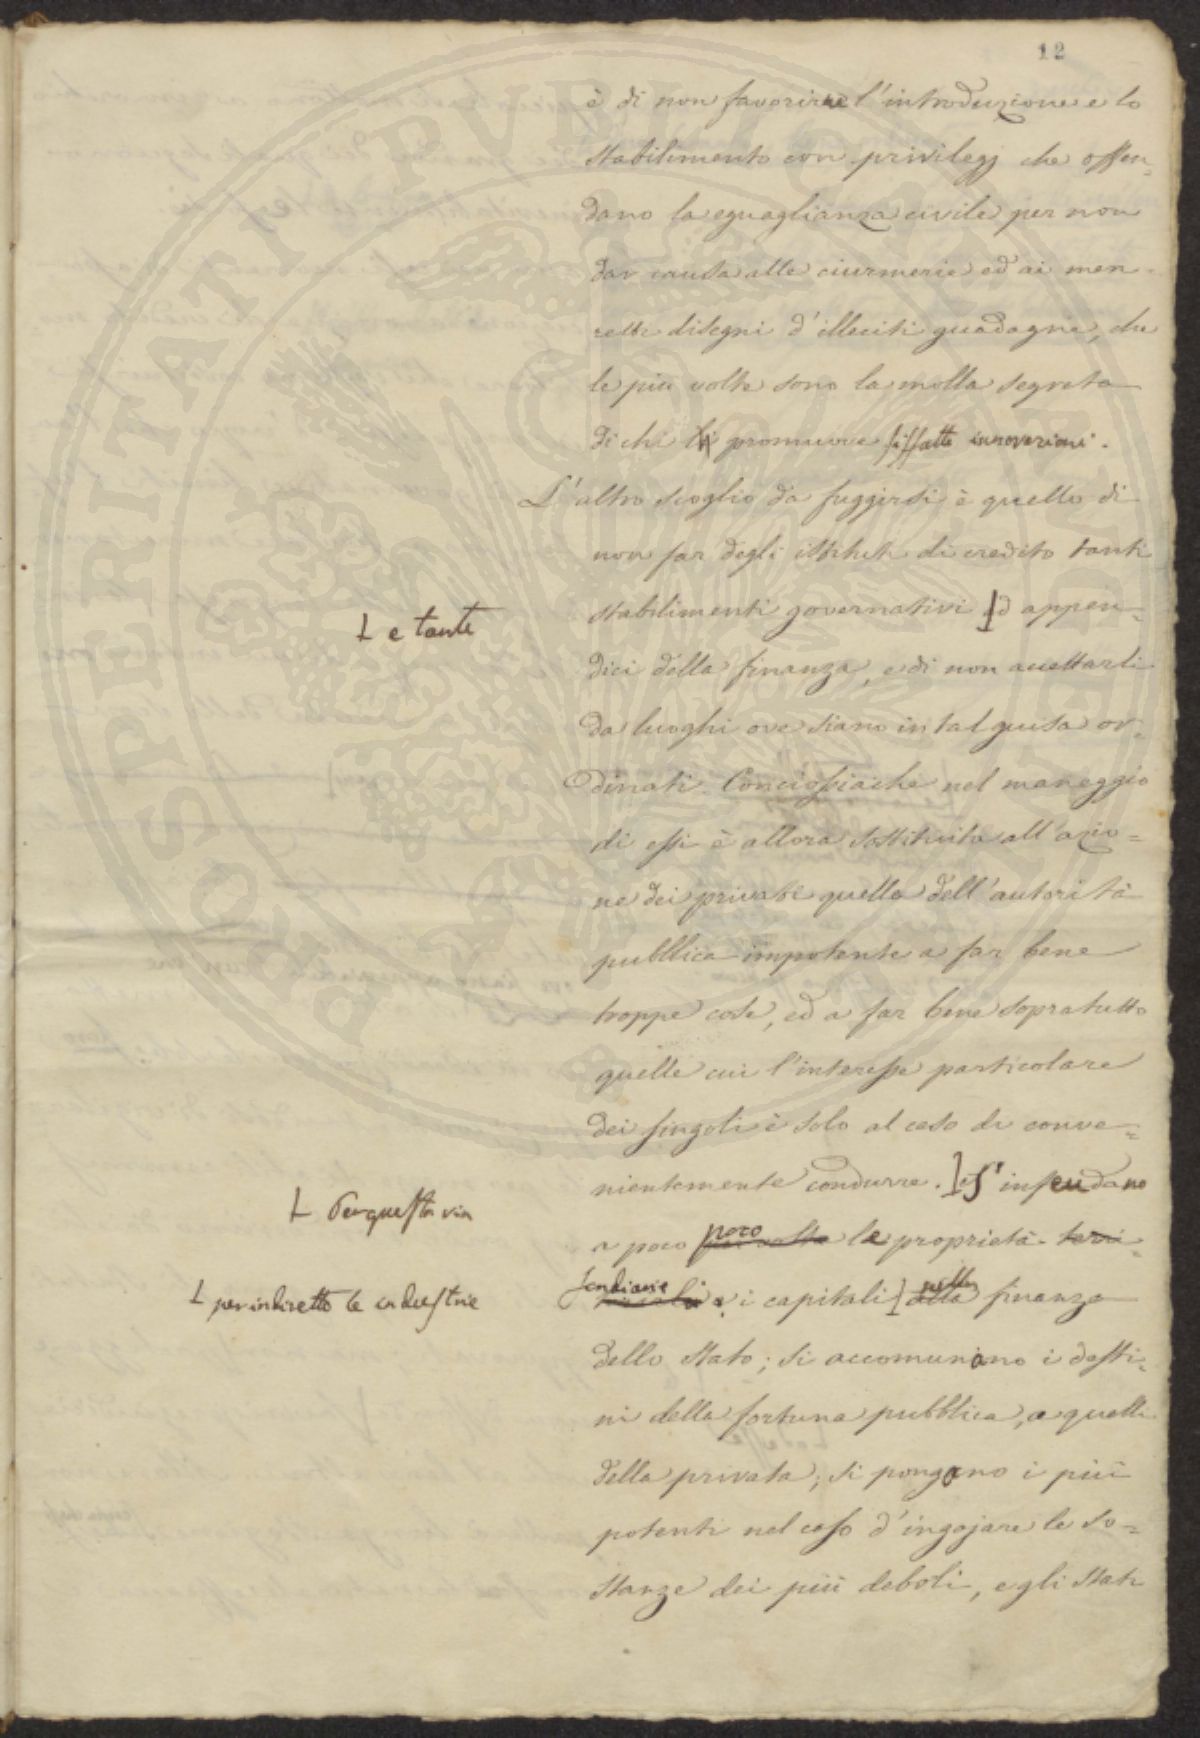 12
è di non favorirne l'introduzione e lo
stabilimento con privilegj che offen=
dano la eguaglianza civile per non
dar causa alle ciurmerie ed ai men=
titi disegni d'illeciti guadagni, che
le più volte sono la molla segreta
di chi promuove siffatte innovazioni.
L'altro scoglio da fuggirsi è quello di
non far degli istituti di credito tanti
stabilimenti governativi ed appen=
L e tante
dici della finanza, e di non accettarli
da luoghi ove siano in tal guisa or=
dinati. Conciossiachè nel maneggio
di essi è allora sostituita all'azio=
ne dei privati quella dell'autorità
pubblica impotente a far bene
troppe cose, ed a far bene sopratutto
quelle cui l'interesse particolare
dei singoli è solo al caso di conve=
nientemente condurre. S'infeudano
L Per questa via
a poco poco le proprietà terri=
fondiarie i capitali nella finanza
L per indiretto le industrie
dello Stato; si accomunano i desti=
ni della fortuna pubblica, a quelli
della privata; si pongono i più
potenti nel caso d'ingojare le so=
stanze dei più deboli, e gli Stati
PROSPERITATI PVBLICAE